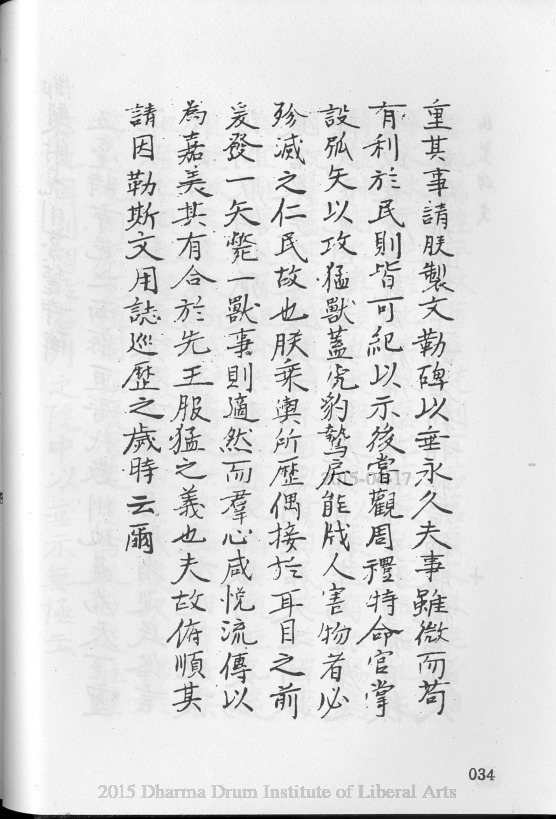 重其事請朕製文勒碑以垂永久夫事雖微而苟
有利於民則皆可紀以示後嘗觀周禮特命官掌
設弧矢以攻猛獸蓋虎豹鷙戾能戕人害物者必
殄滅之仁民故也朕乘輿所歷偶接於耳目之前
爰發一矢斃一獸事則適然而羣心咸悅流傳以
為嘉美其有合於先王服猛之義也夫故俯順其
請因勒斯文用誌巡歷之歲時云爾
034
2015 Dharma Drum Institute of Liberal Arts